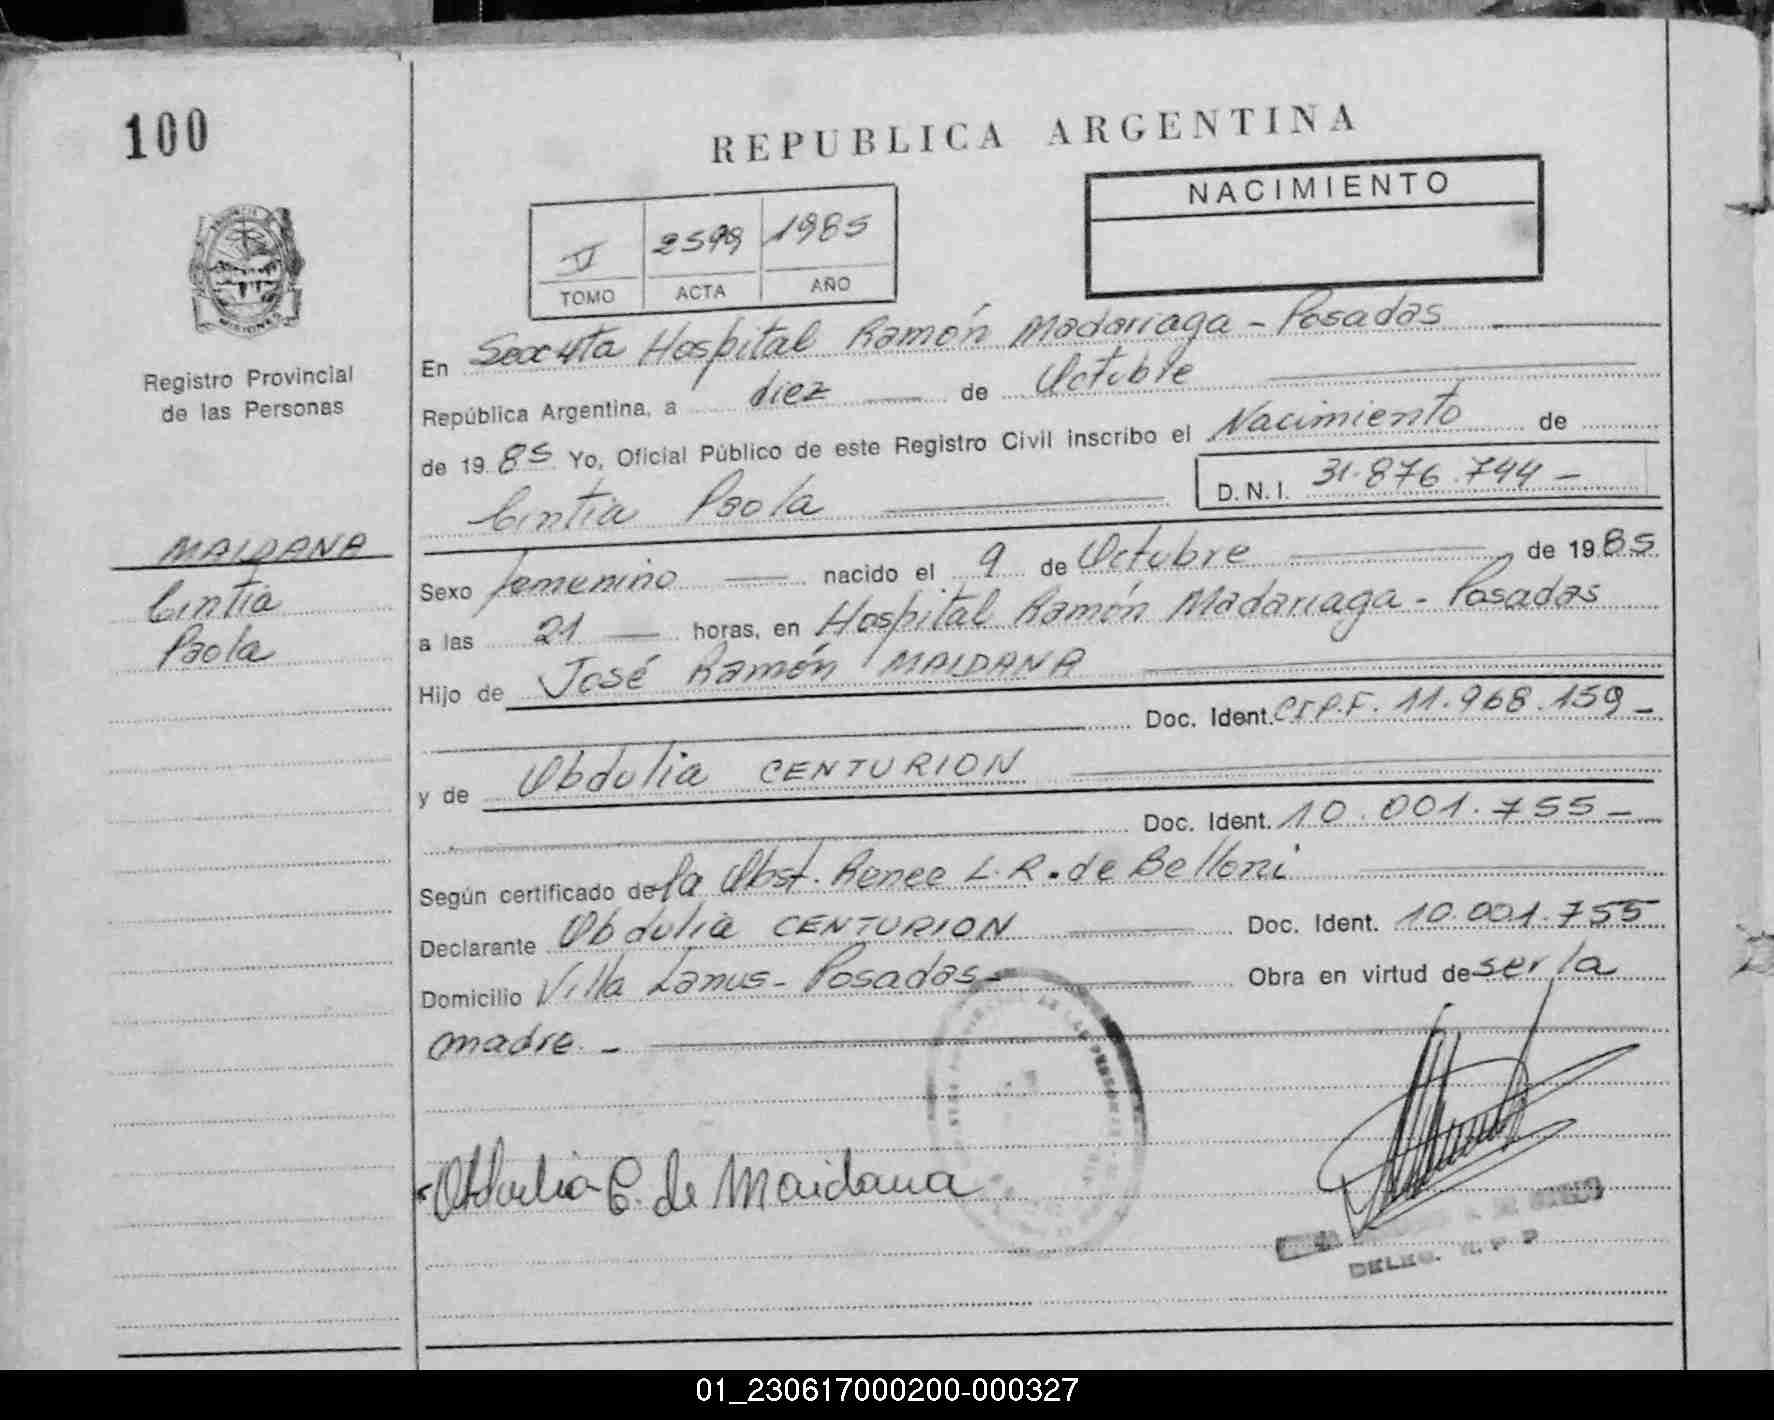 100
REPUBLICA ARGENTINA
NACIMIENTO
V 2599 1985
TOMO ACTA AÑO
PROVINCIA DE
MISIONES
Registro Provincial
de las Personas
En Secc 4ta Hospital Ramón Madariaga - Posadas
República Argentina, a diez de Octubre
de 1985 Yo, Oficial Público de este Registro Civil inscribo el Nacimiento de
Cintia Paola D.N.I. 31.876.744 -
MAIDANA
Cintia
Paola
Sexo femenino nacido el 9 de Octubre de 1985
a las 21 horas, en Hospital Ramón Madariaga - Posadas
Hijo de José Ramón MAIDANA
Doc. Ident. C.I.P.F. 11.968.159 -
y de Obdulia CENTURION
Doc. Ident. 10.001.755 -
Según certificado de la Obst. Renee L. R. de Belloni
Declarante Obdulia CENTURION Doc. Ident. 10.001.755
Domicilio Villa Lanus - Posadas - Obra en virtud de ser la
madre. -
Obdulia C. de Maidana
DELEG. R. P. P
01_230617000200-000327